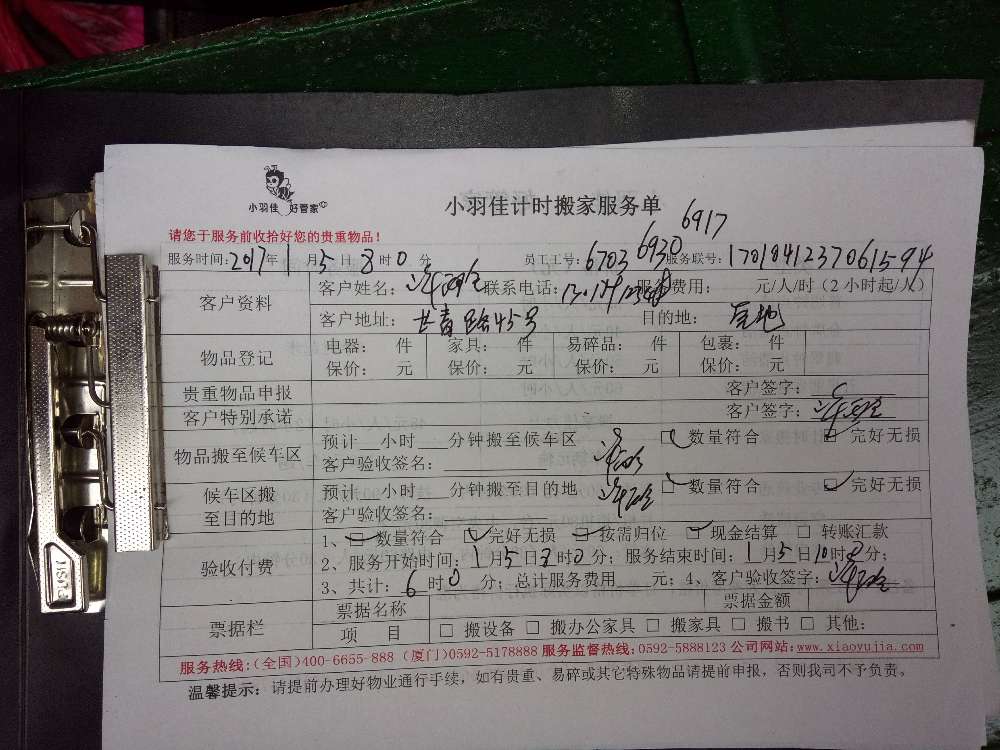 小羽佳 好管家
小羽佳计时搬家服务单
请您于服务前收拾好您的贵重物品！
6917
服务时间：2017年1月5日8时0分 员工工号：6703 6930 服务联号：1701841237061594
客户资料 客户姓名： 联系电话： 服务费用： 元/人/时（2小时起/人）
客户地址： 共青路45号 目的地：
物品登记 电器： 件 家具： 件 易碎品： 件 包裹： 件
保价： 元 保价： 元 保价： 元 保价： 元
贵重物品申报 客户签字：
客户特别承诺 客户签字：
物品搬至候车区 预计 小时 分钟搬至候车区 □ 数量符合 □ 完好无损
客户验收签名：
候车区搬至目的地 预计 小时 分钟搬至目的地 □ 数量符合 □ 完好无损
客户验收签名：
验收付费 1、□ 数量符合 □ 完好无损 □ 按需归位 □ 现金结算 □ 转账汇款
2、服务开始时间：1月5日8时0分；服务结束时间：1月5日10时0分；
3、共计：6时0分；总计服务费用 元；4、客户验收签字：
票据栏 票据名称 票据金额
项 目 □ 搬设备 □ 搬办公家具 □ 搬家具 □ 搬书 □ 其他：
服务热线：（全国）400-6655-888（厦门）0592-5178888 服务监督热线：0592-5888123 公司网站：www.xiaoyujia.com
温馨提示：请提前办理好物业通行手续，如有贵重、易碎或其它特殊物品请提前申报，否则我司不予负责。
PUSH